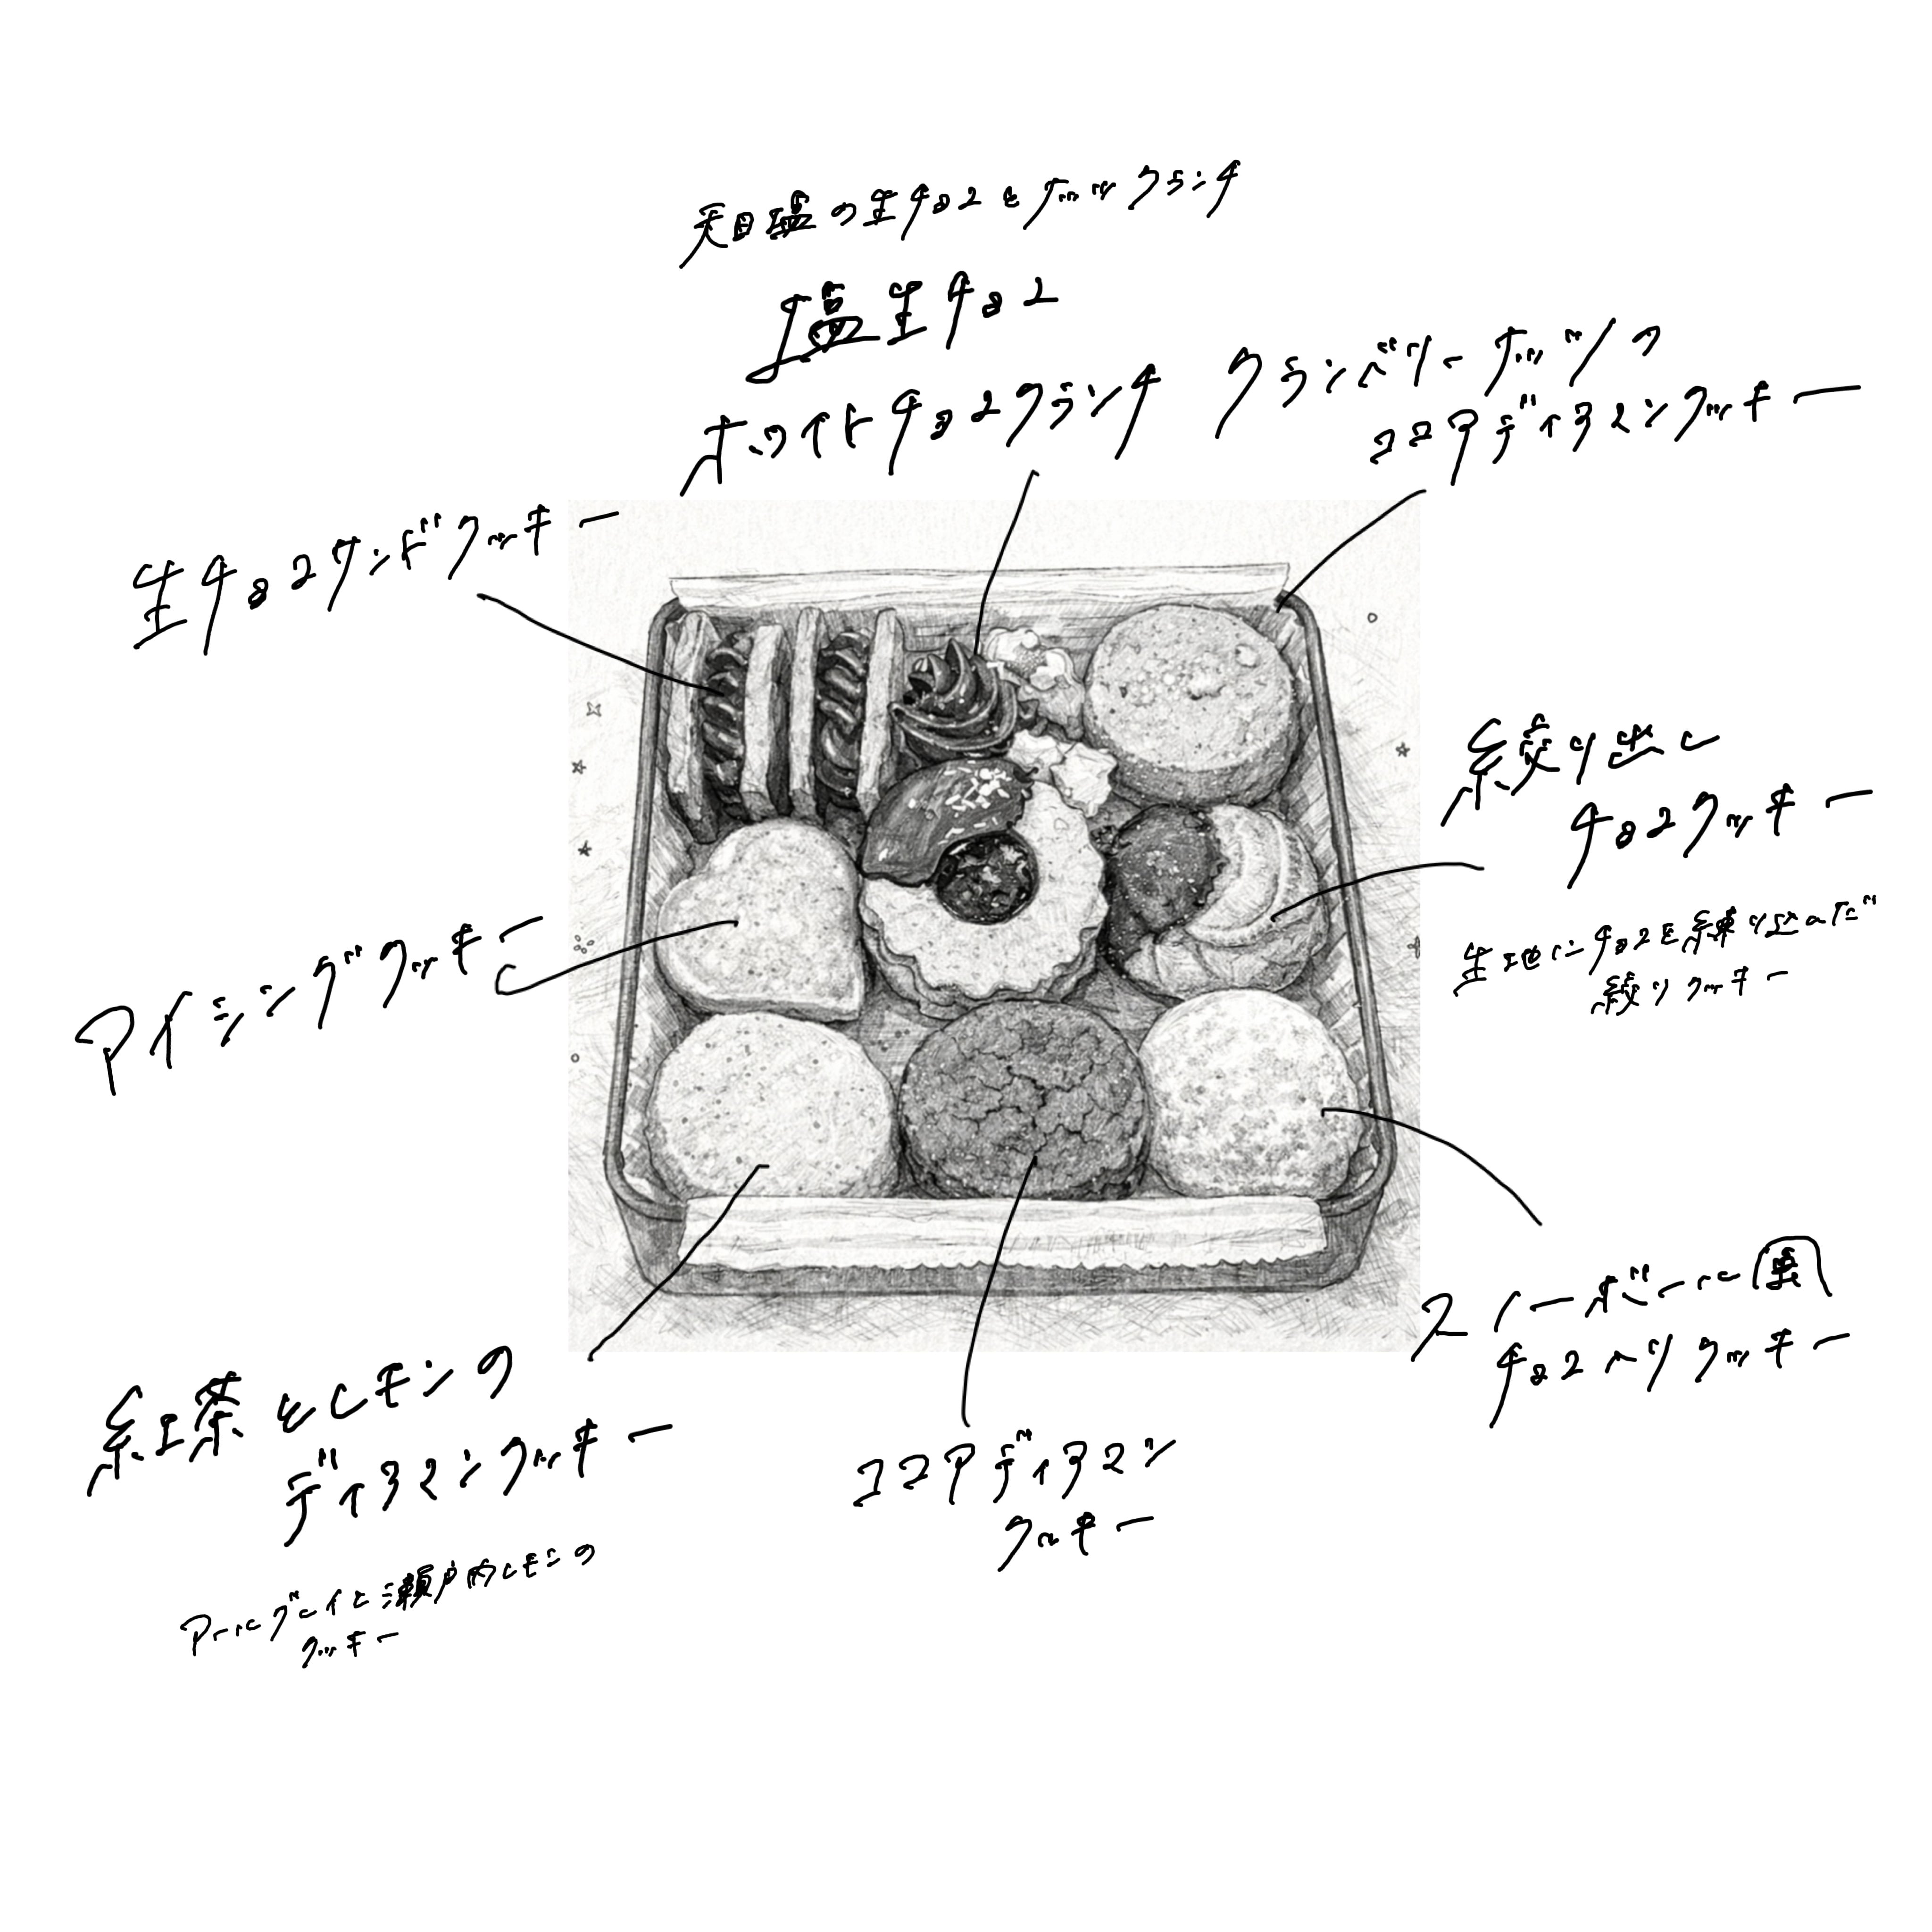 天日塩の生チョコとナッツクランチ
塩生チョコ
ホワイトチョコクランチ
クランベリーナッツの
ココアディアマンクッキー
生チョコサンドクッキー
絞り出し
チョコクッキー
生地にチョコを練り込んだ
絞りクッキー
アイシングクッキー
スノーボール風
チョコベリクッキー
紅茶とレモンの
ディアマンクッキー
アールグレイと瀬戸内レモンの
クッキー
ココアディアマン
クッキー